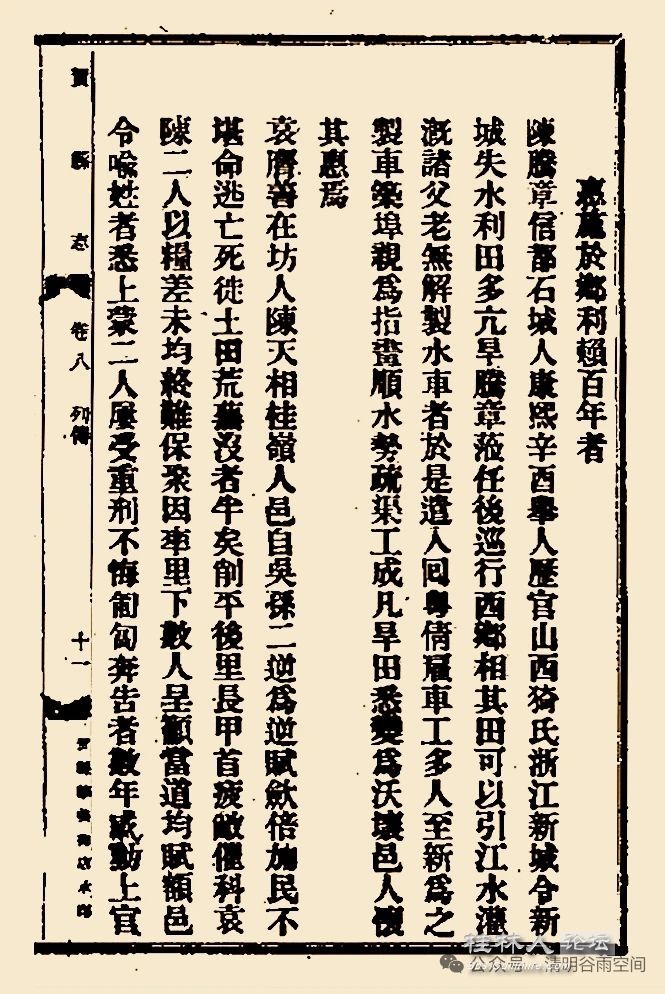 惠施於鄉利賴百年者
陳騰章信都石城人康熙辛酉舉人歷官山西猗氏浙江新城令新
城失水利田多亢旱騰章蒞任後巡行西鄉相其田可以引江水灌
溉諸父老無解製水車者於是遣人回粵倩雇車工多人至新為之
製車築埠親為指畫順水勢疏渠工成凡旱田悉變為沃壤邑人懷
其惠焉
袁 善在坊人陳天相桂嶺人邑自吳孫二逆為逆賦歛倍施民不
堪命逃亡死徙土田荒蕪沒者半矣削平後里長甲首疲敝催科袁
陳二人以糧差未均終難保聚因率里下數人呈籲當道均賦額邑
令喻姓者悉上蒙二人屢受重刑不悔匍匐奔告者數年感動上官
賀縣志 卷八 列傳 十一
桂林人论坛
公众号 清明谷雨空间